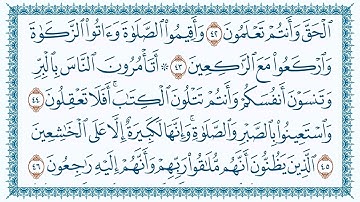 ٱلْحَقَّ وَأَنتُمْ تَعْلَمُونَ ٤٢ وَأَقِيمُوا۟ ٱلصَّلَوٰةَ وَءَاتُوا۟ ٱلزَّكَوٰةَ
وَٱرْكَعُوا۟ مَعَ ٱلرَّٰكِعِينَ ٤٣ ۞ أَتَأْمُرُونَ ٱلنَّاسَ بِٱلْبِرِّ
وَتَنسَوْنَ أَنفُسَكُمْ وَأَنتُمْ تَتْلُونَ ٱلْكِتَٰبَ ۚ أَفَلَا تَعْقِلُونَ ٤٤
وَٱسْتَعِينُوا۟ بِٱلصَّبْرِ وَٱلصَّلَوٰةِ ۚ وَإِنَّهَا لَكَبِيرَةٌ إِلَّا عَلَى ٱلْخَٰشِعِينَ
٤٥ ٱلَّذِينَ يَظُنُّونَ أَنَّهُم مُّلَٰقُوا۟ رَبِّهِمْ وَأَنَّهُمْ إِلَيْهِ رَٰجِعُونَ ٤٦